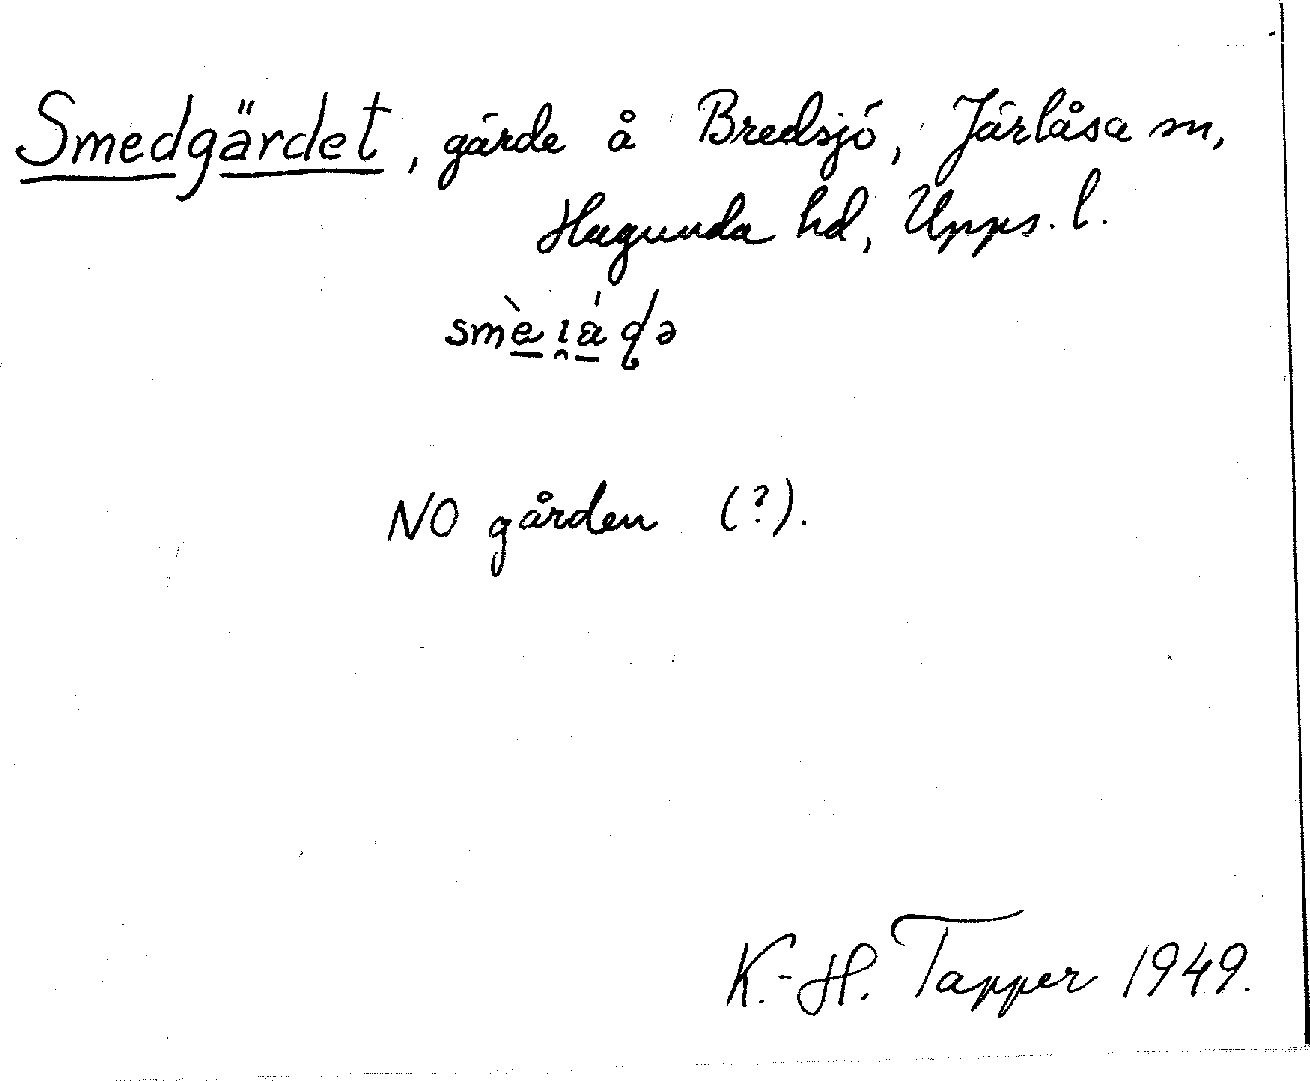 Smedgärdet, gärde å Bredsjö, Järlåsa sn,
Hagunda hd, Upps. l.
NO gården (?).
K.-H. Tapper 1949.